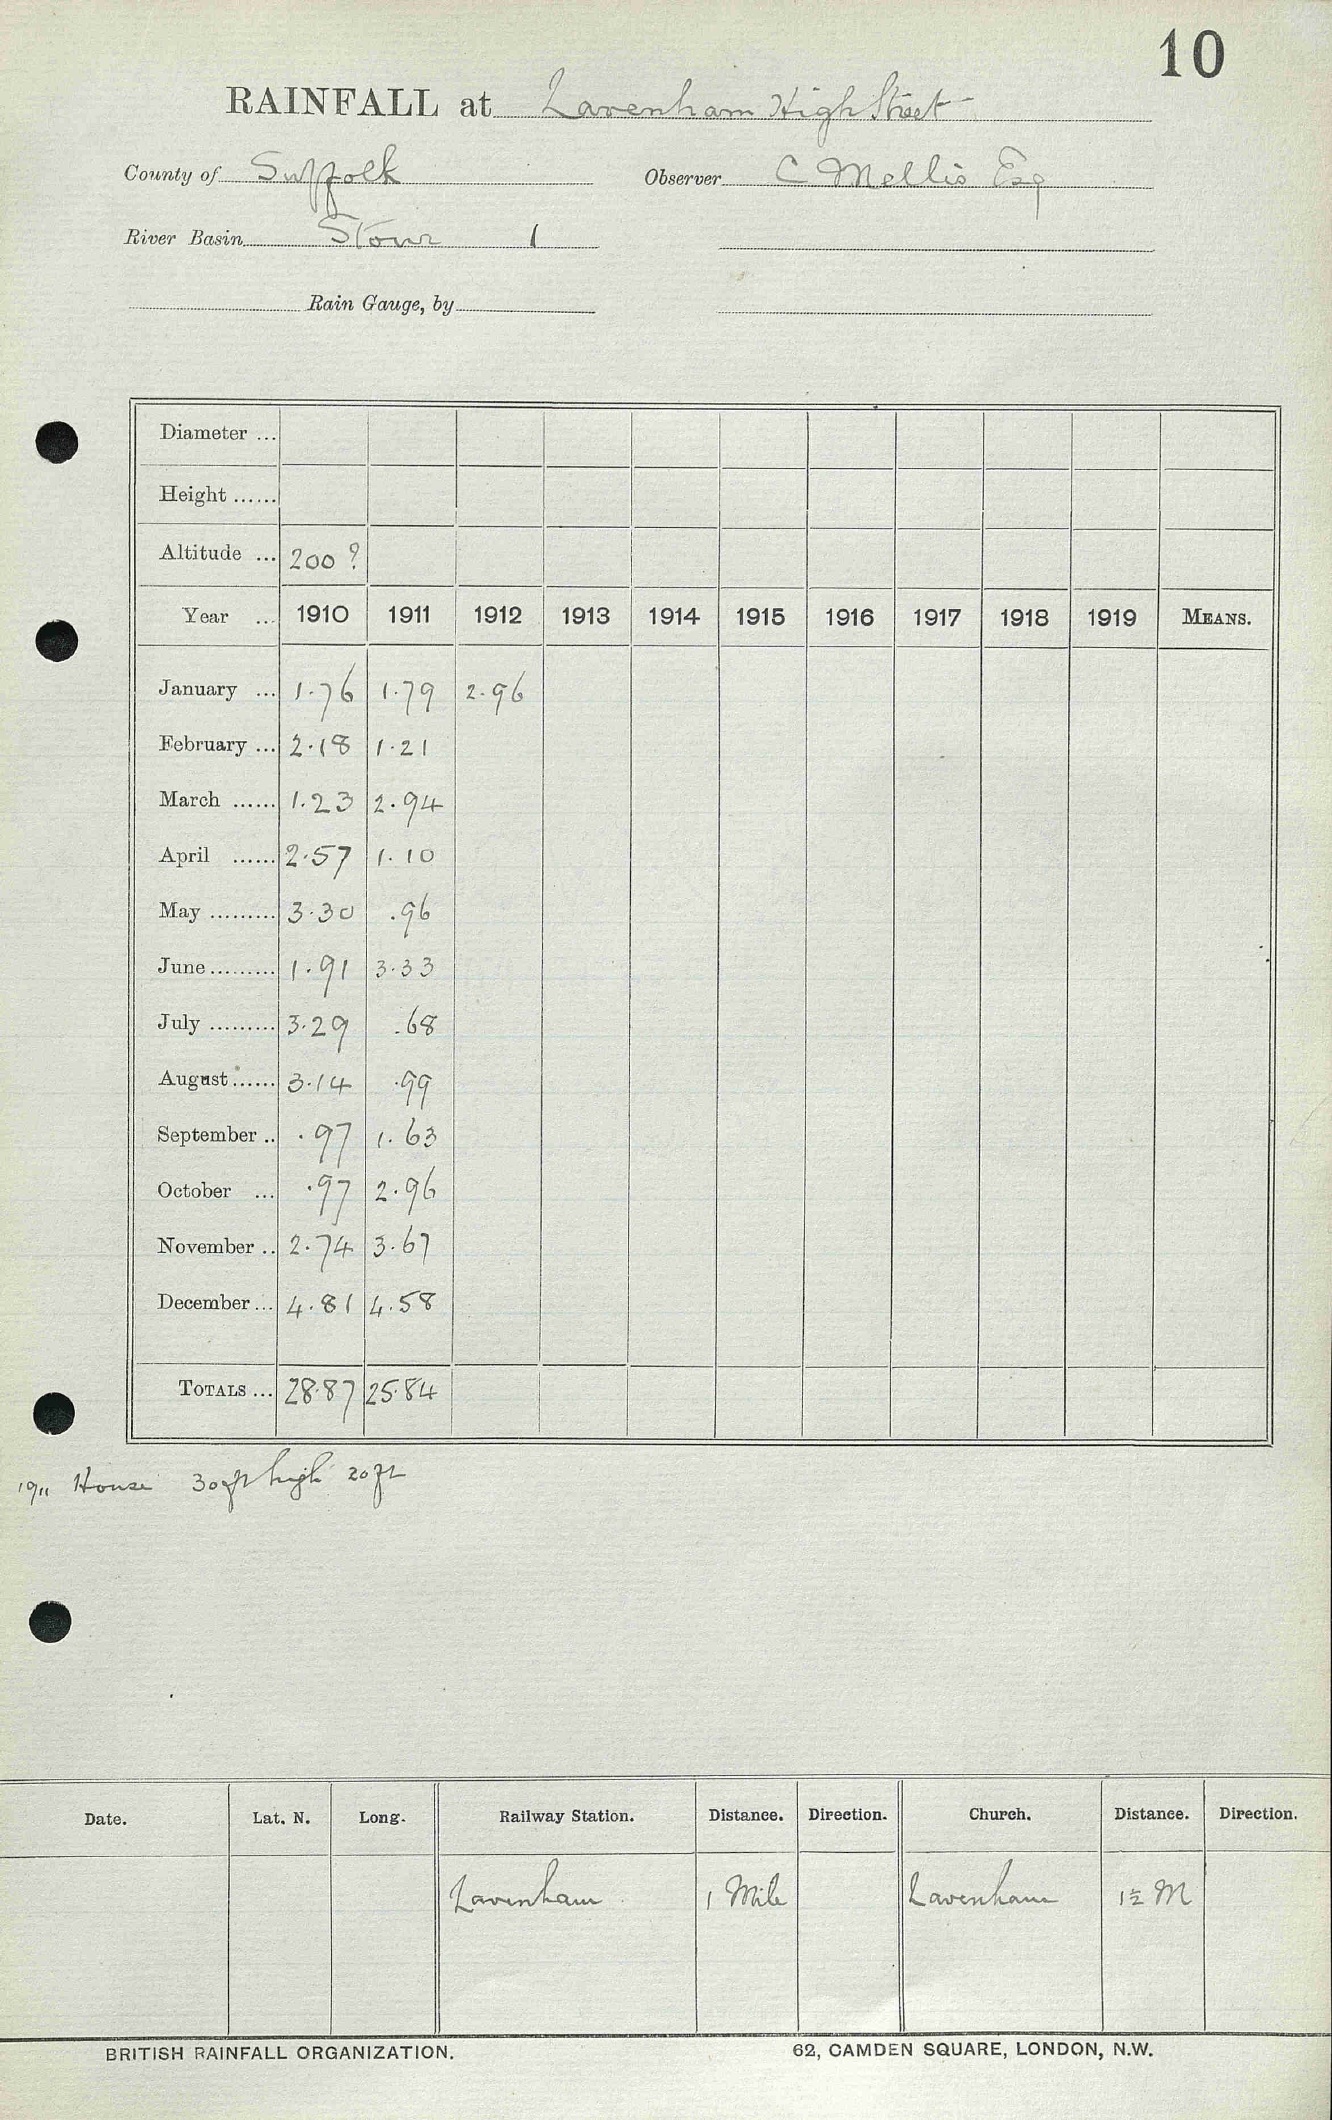 10
RAINFALL at Lavenham High Street
County of Suffolk Observer C Mellis Esq
River Basin Stour 1
Rain Gauge, by
Diameter ...
Height ......
Altitude ... 200 ?
Year ... 1910 1911 1912 1913 1914 1915 1916 1917 1918 1919 MEANS.
January ... 1.76 1.79 2.96
February ... 2.18 1.21
March ...... 1.23 2.94
April ...... 2.57 1.10
May ......... 3.30 .96
June ......... 1.91 3.33
July ......... 3.29 .68
August ...... 3.14 .99
September .. .97 1.63
October ... .97 2.96
November .. 2.74 3.67
December ... 4.81 4.58
TOTALS ... 28.87 25.84
1911 House 30 ft high 20 ft
Date. Lat. N. Long. Railway Station. Distance. Direction. Church. Distance. Direction.
Lavenham 1 Mile Lavenham 1½ M
BRITISH RAINFALL ORGANIZATION. 62, CAMDEN SQUARE, LONDON, N.W.